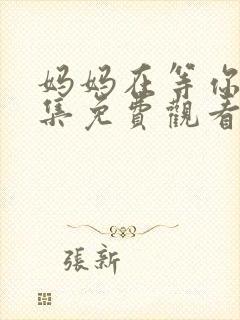 妈妈在等你
集免費觀看
張新